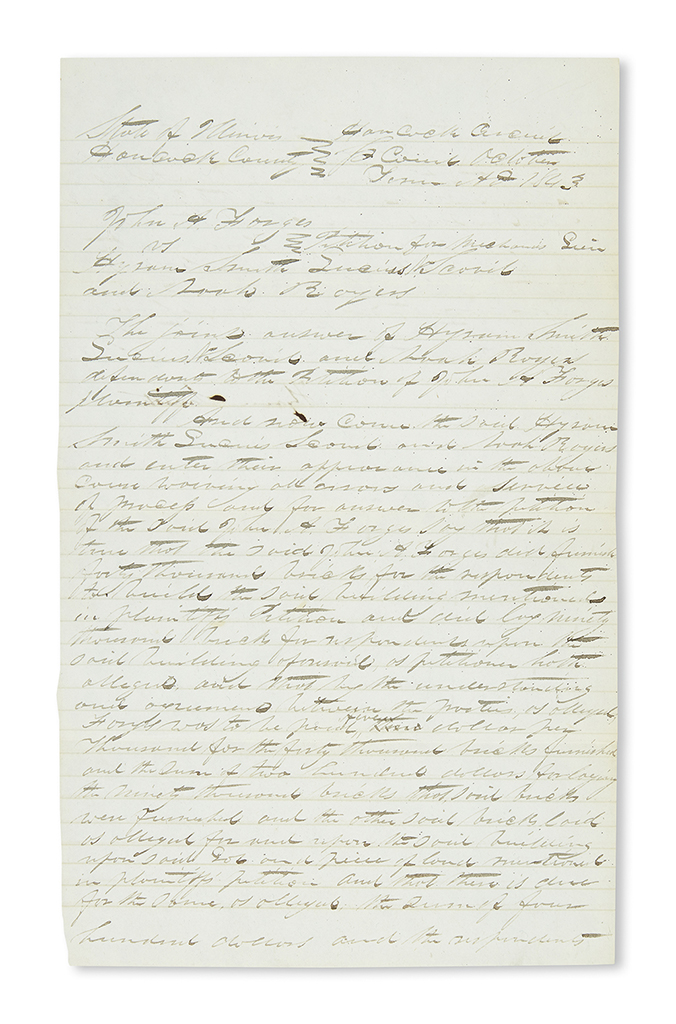 State of Illinois Hancock Circuit
Hancock County Court October
Term AD 1843
John A Forges
vs Petition for Mechanics Lien
Hyram Smith Lucius Scovil
and Noah Rogers
The joint answer of Hyrum Smith
Lucius Scovil and Noah Rogers
defendants to the Petition of John A Forges
plaintiff
And now come the said Hyram
Smith Lucius Scovil and Noah Rogers
and enter their appearance in the above
cause waiving all errors and service
of process and for answer to the petition
of the said John A Forges Say that it is
true that the said John A Forges did furnish
forty thousand bricks for the respondents
to build the said building mentioned
in plaintiffs Petition and did lay ninety
thousand brick for respondents upon the
said building aforesaid as petitioner hath
alleged and that by the understanding
and agreement between the parties, as alleged,
Forges was to be paid dollars per
thousand for the forty thousand bricks furnished
and the sum of two hundred dollars for laying
the ninety thousand bricks that said bricks
were furnished and the other said brick laid
as alleged for and upon the said building
upon said Lot and piece of land mentioned
in plaintiffs petition and that there is due
for the same, as alleged, the sum of four
hundred dollars and the respondents